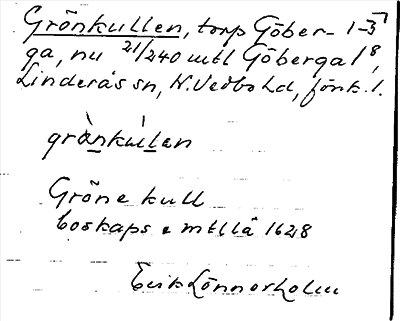 Grönkullen, torp Göber- 1-3
ga, nu 21/240 mtl Göberga 1 8,
Linderås sn, N. Vedbo hd, Jönk. l.
grànkúlen
Gröne kull
boskaps mtll å 1628
Erik Lönnerholm